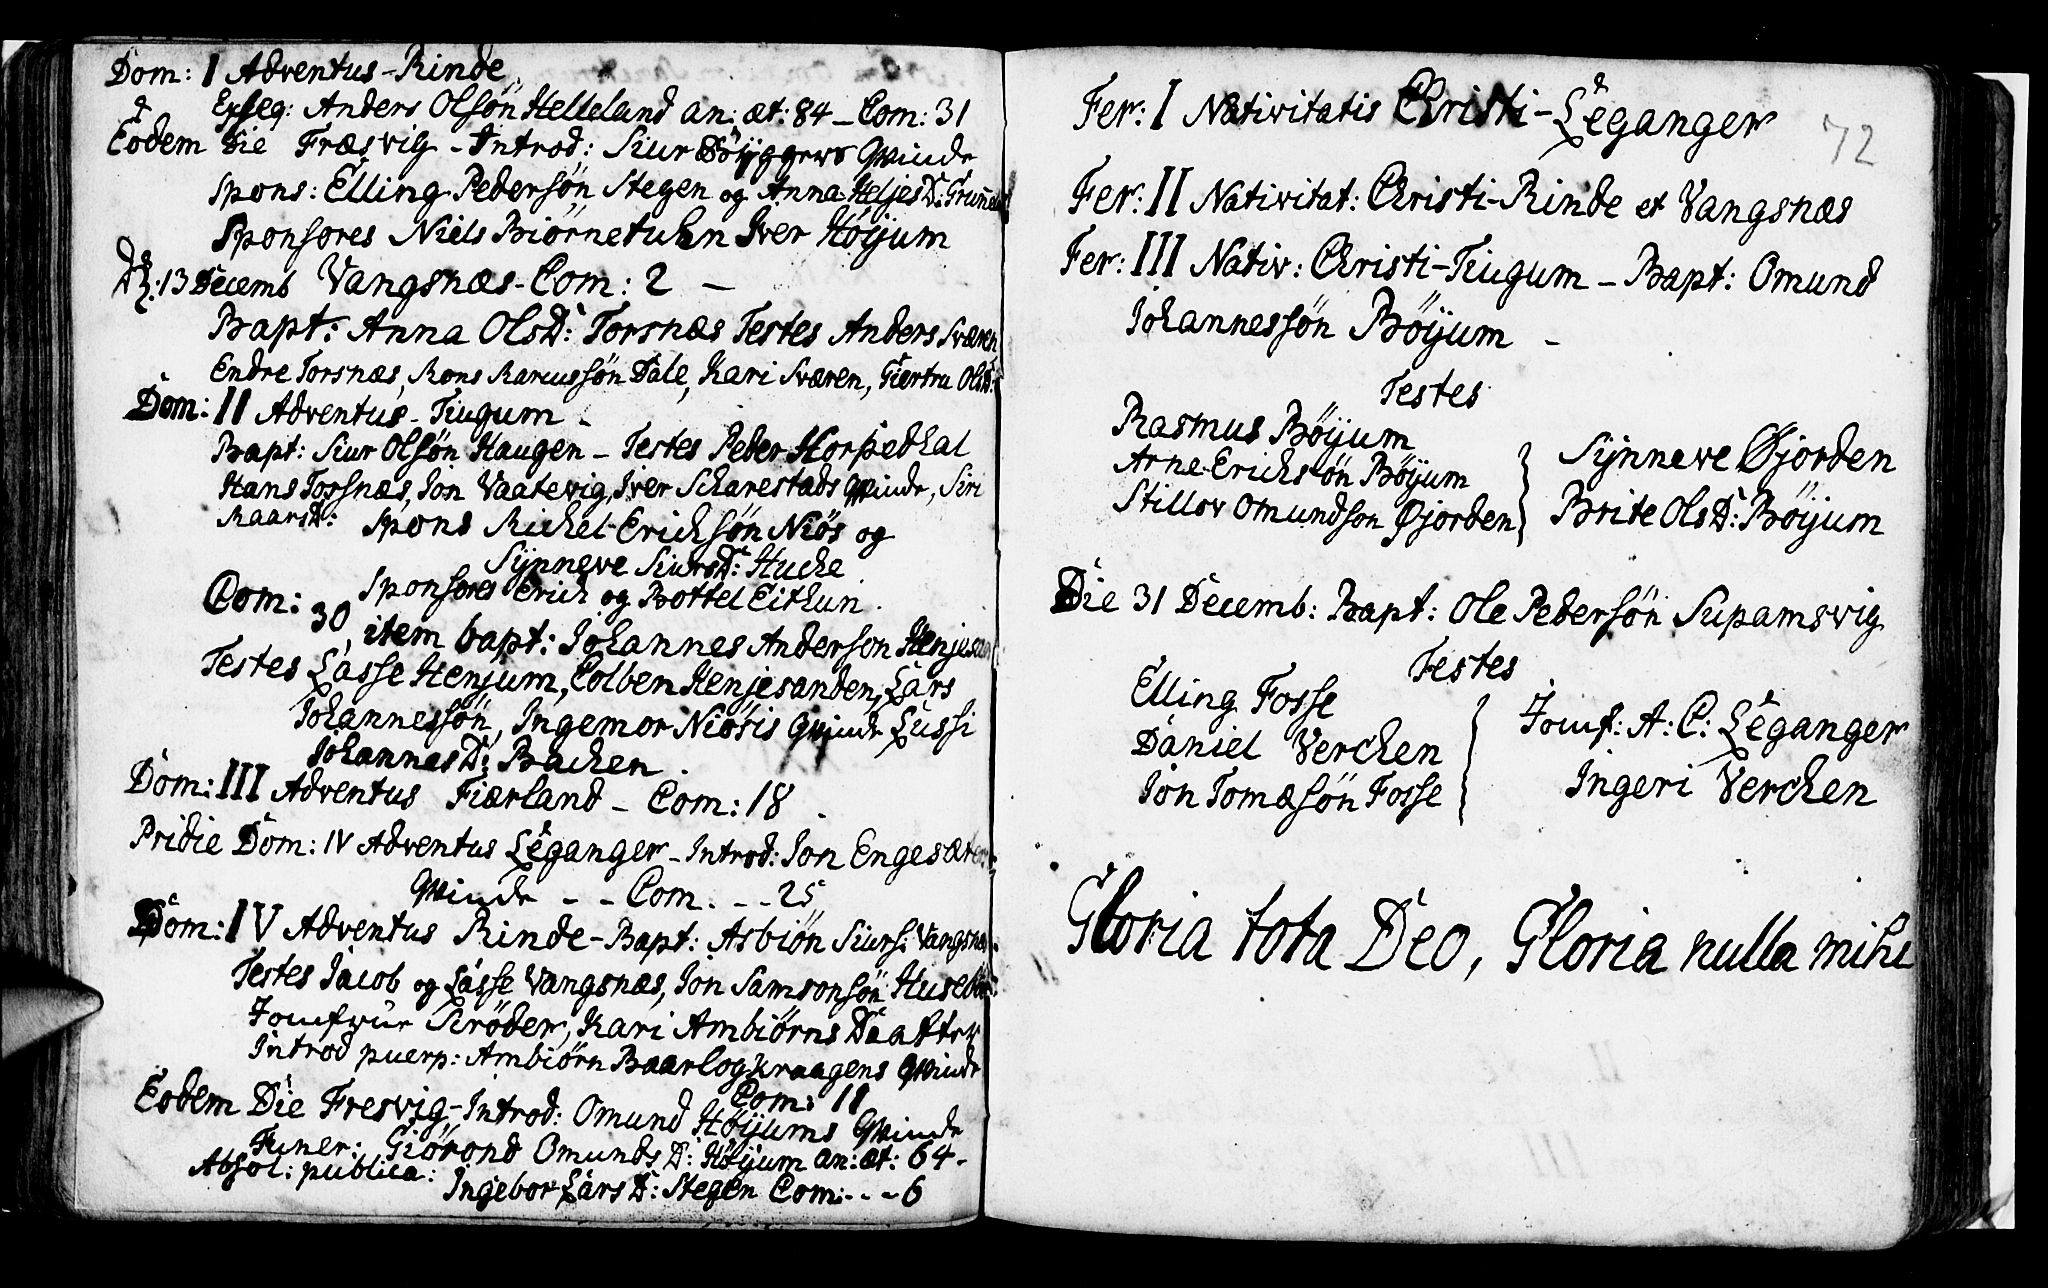 Dom: I Adventus - Rinde
Exseq: Anders Olsøn Helleland an: æt: 84 - Com: 31
Eodem Die Fræsvig - Introd: Siur Böyggers Qvinde
Spons: Elling Pedersøn Stegen og Anna HeljesD:
Sponsores Niels Biørnetuhn Iver Høÿjum
13 Decemb Vangsnæs - Com: 2 -
Bapt: Anna OlsD: Torsnæs Testes Anders Sværen
Endre Torsnæs, Mons Marcussøn Dale, Kari Sværen, Giertru OlsD:
Dom: II Adventus - Tiugum -
Bapt: Siur Olsøn Haugen - Testes Peder Horpedhal
Hans Torsnæs, Jon Vaatevig, Iver Scharestads Qvinde, Siri
KaarsD: Spons Michel Erichsøn Niøs og
Sÿnneve SiursD: Huche
Sponsores Erich og Bottel Eithun.
Com: 30, item bapt: Johannes Anderson Henjesan
Testes Lasse Henjum, Colben Henjesanden, Lars
Johannessøn, Ingemor Niøsis Qvinde Lussi
JohannesD: Bachen.
Dom: III Adventus Fiærland - Com: 18.
Pridie Dom: IV Adventus Leganger - Introd: Jon Engesæter
Qvinde - - Com. - - 25
Dom: IV Adventus Rinde - Bapt: Asbiøn Siurs: Vangsnæs
Testes Jacob og Lasse Vangsnæs, Jon Samsonsøn Husebøe
Jomfrue Scrøder, Kari Ambiørns Daatter
Introd puerp: Ambiørn Baarlogkraagens Qvinde
Com: 11
Eodem Die Fresvig - Introd: Omund Høÿjums Qvinde
Funer: Giørond OmundsD: Høÿjum an: æt: 64 -
Absol: publica: Ingebor LarsD: Stegen Com: - - - 6
72
Fer: I Nativitatis Christi - Leganger
Fer: II Nativitat: Christi - Rinde et Vangsnæs
Fer: III Nativ: Christi - Tiugum - Bapt: Omund
Johannessøn Bøÿum -
Testes
Rasmus Bøÿum
Arne Erichsøn Bøÿum
Stillov Omundson Øjorden
Sÿnneve Øjorden
Brite OlsD: Bøÿum
Die 31 Decemb: Bapt: Ole Pedersøn Supamsvig
Testes
Elling Fosse
Daniel Verchen
Jon Tomæsøn Fosse
Jomf: A: C: Leganger
Ingeri Verchen
Gloria tota Deo, Gloria nulla mihi